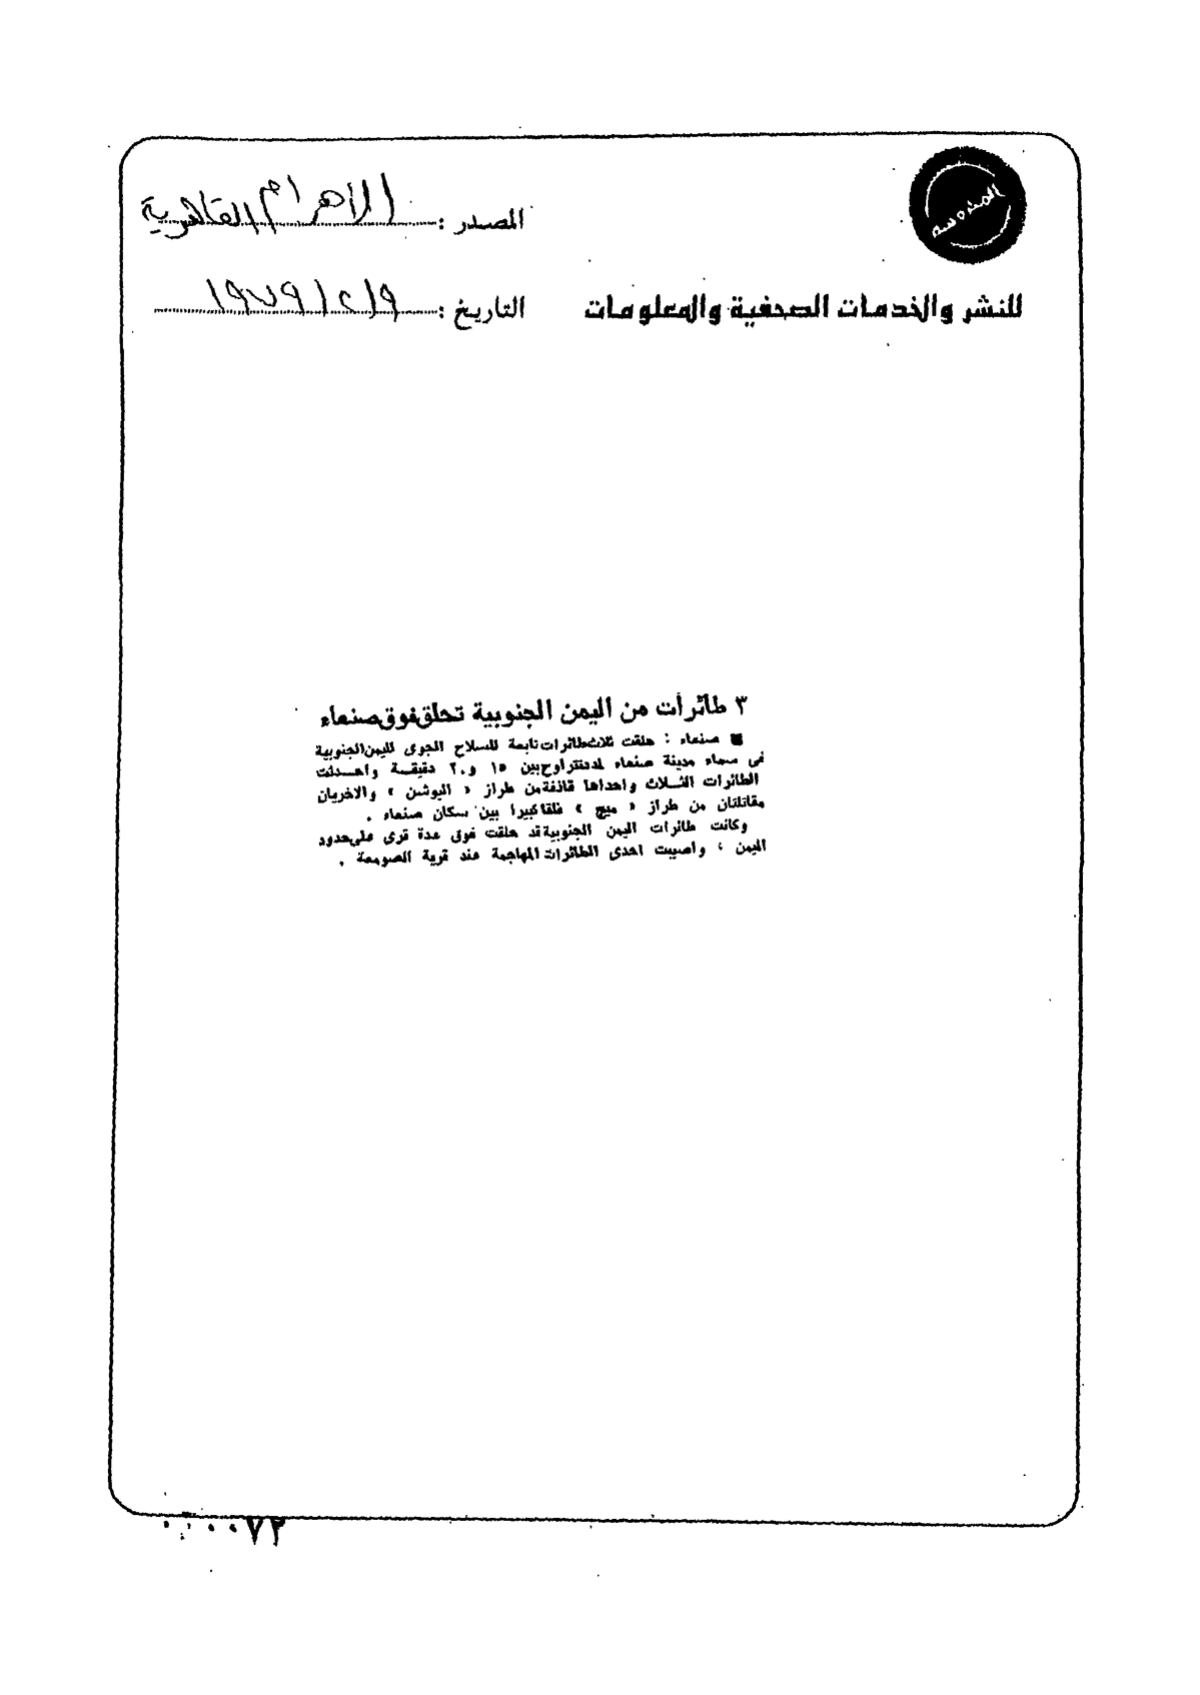 المصدر : الأهرام القاهرية
للنشر والخدمات الصحفية والمعلومات
التاريخ : ١٩٧٩/٢/٩
٣ طائرات من اليمن الجنوبية تحلق فوق صنعاء
■ صنعاء : حلقت ثلاث طائرات تابعة للسلاح الجوى لليمن الجنوبية
فى سماء مدينة صنعاء لمدد تتراوح بين ١٥ و٢٠ دقيقة واحدثت
الطائرات الثلاث واحداها قاذفة من طراز « اليوشن » والاخريان
مقاتلتان من طراز « ميج » قلقا كبيرا بين سكان صنعاء .
وكانت طائرات اليمن الجنوبية قد حلقت فوق عدة قرى على حدود
اليمن ، واصيبت احدى الطائرات المهاجمة عند قرية الصومعة .